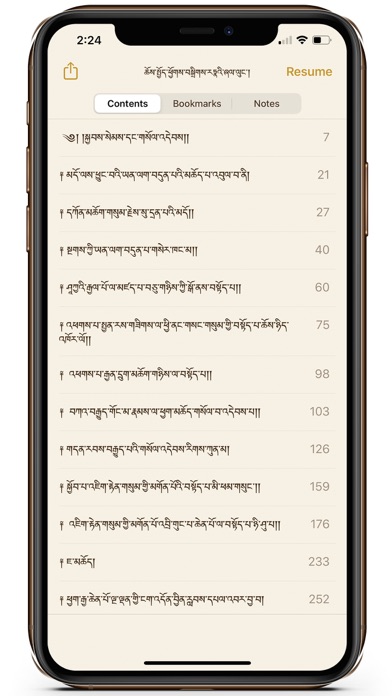 2:24
ཆོས་སྤྱོད་ཕྱོགས་བསྒྲིགས་རཏྣའི་ཞལ་ལུང་།
Resume
Contents
Bookmarks
Notes
༄༅། །སྐྱབས་སེམས་དང་གསོལ་འདེབས།།
7
༈ མདོ་ལས་ཕྱུང་བའི་ཡན་ལག་བདུན་པའི་མཆོད་པ་འབུལ་བ་ནི།
21
༈ དཀོན་མཆོག་གསུམ་རྗེས་སུ་དྲན་པའི་མདོ།།
27
༈ སྔགས་ཀྱི་ཡན་ལག་བདུན་པ་གསེར་ཁང་མ།།
40
༈ ཤཱཀྱའི་རྒྱལ་པོ་ལ་མཛད་པ་བཅུ་གཉིས་ཀྱི་སྒོ་ནས་བསྟོད་པ།།
60
༈ འཕགས་པ་སྤྱན་རས་གཟིགས་ལ་ཕྱི་ནང་གསང་གསུམ་གྱི་བསྟོད་པ་ཆོས་ཉིད་
འཁོར་ལོ།།
75
༈ འཕགས་པ་རྒྱན་དྲུག་མཆོག་གཉིས་ལ་བསྟོད་པ།།
98
༈ བཀའ་བརྒྱུད་གོང་མ་རྣམས་ལ་ཕྱག་མཆོད་གསོལ་བ་འདེབས་པ།།
103
༈ གདན་རབས་བརྒྱུད་པའི་གསོལ་འདེབས་རིགས་ཀུན་མ།
126
༈ སྐྱོབ་པ་འཇིག་རྟེན་གསུམ་གྱི་མགོན་པོའི་བསྟོད་པ་མི་ཕམ་གསུང་།།
159
༈ འཇིག་རྟེན་གསུམ་གྱི་མགོན་པོ་འབྲི་གུང་པ་ཆེན་པོ་ལ་བསྟོད་པ་ཉི་ཤུ་པ།།
176
༈ ཇ་མཆོད།
233
༈ ཕྱག་རྒྱ་ཆེན་པོ་ལྔ་ལྡན་གྱི་ངག་འདོན་བྱིན་རླབས་དཔལ་འབར་བྱ་བ།
252